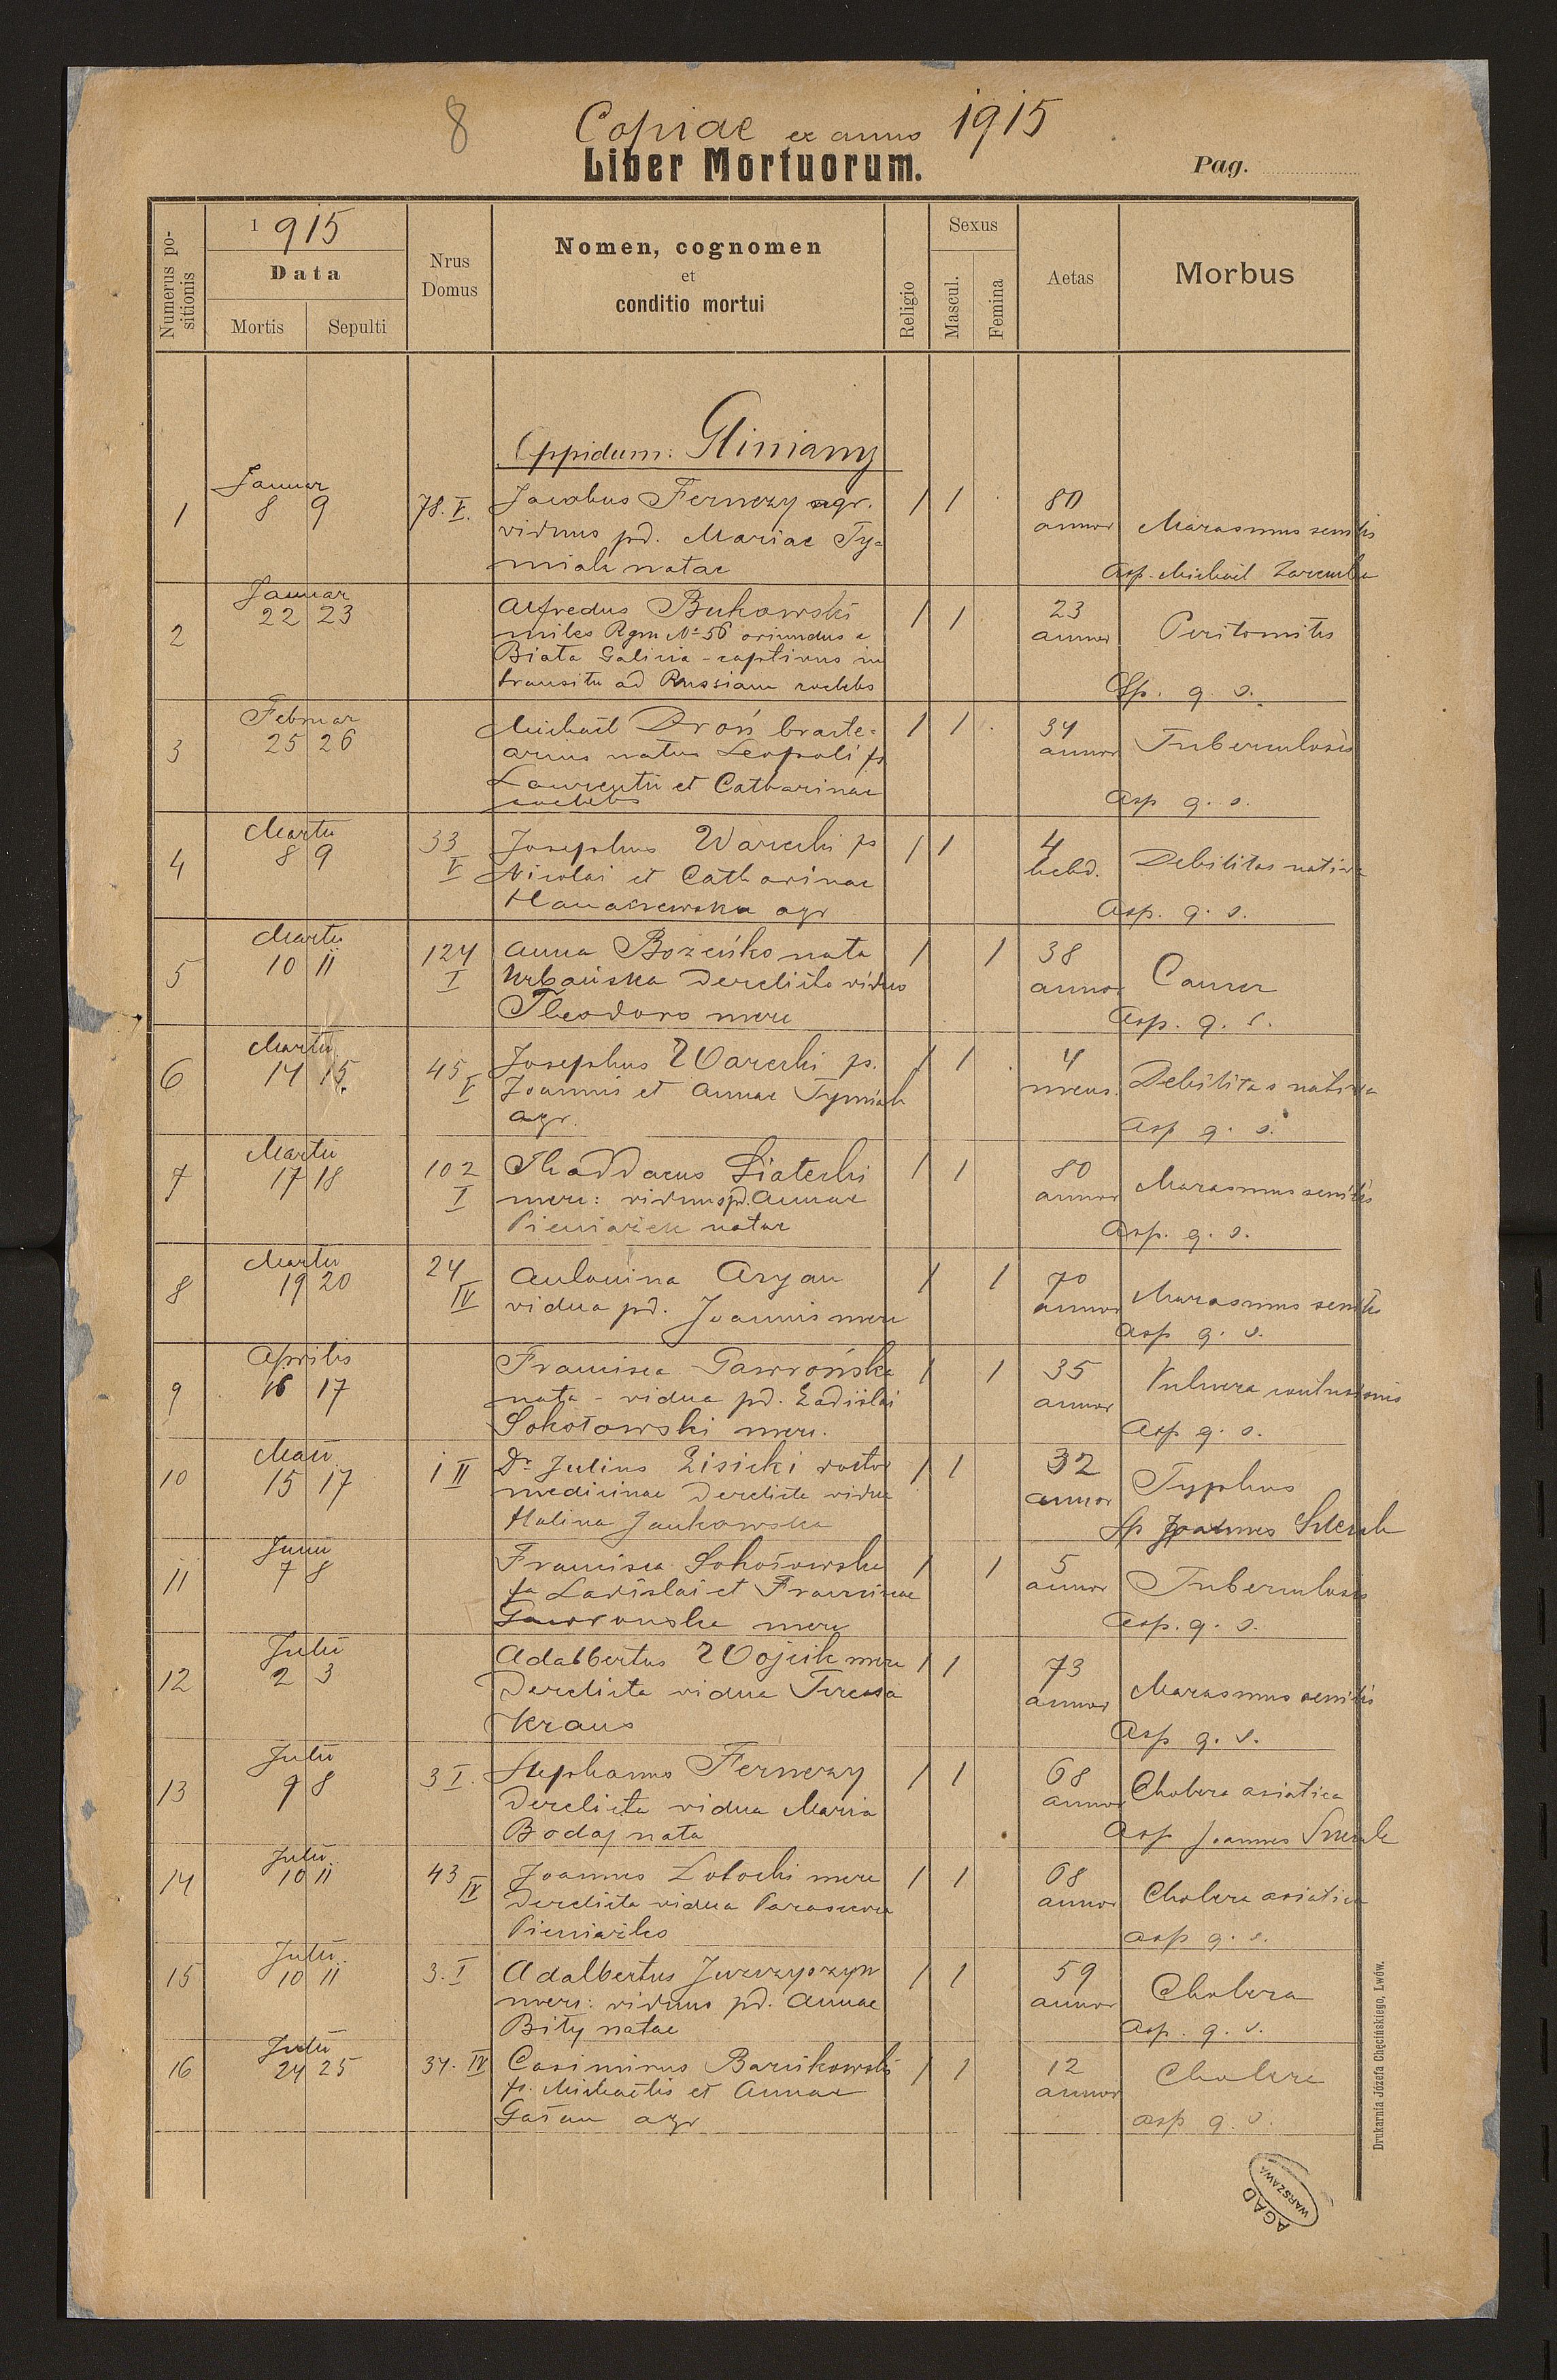 8 Copiae ex anno 1915
Liber Mortuorum.
Pag.
Numerus positionis
1915
Data
Mortis Sepulti
Nrus Domus
Nomen, cognomen
et
conditio mortui
Religio
Sexus
Mascul.
Femina
Aetas
Morbus
Oppidum: Gliniany
Januar
1 8 9 78. V. Jacobus Fernezy agr. 1 1 80
viduus pd. Mariae Ty- annor Marasmus senilis
miak natae Asp. Michael Zaremba
Januar
2 22 23 Alfredus Bukowski 1 1 23
miles Rgm No 56 oriundus e annor Peritonitis
Biała Galicia - captivus in
transitu ad Russiam coelebs Asp. q. s.
Februar
3 25 26 Michaël Droń bracte- 1 1 34
arius natus Leopoli fs annor Tuberculosis
Laurentii et Catharinae
coelebs Asp q. s.
Martii
4 8 9 33 V Josephus Warecki fs 1 1 4
Nicolai et Catharinae hebd. Debilitas nativa
agr Asp. q. s.
Martii
5 10 11 124 I Anna Bozeńko nata 1 1 38
Urbańska derelicto viduo annor Cancer
Theodoro merc Asp. q. s.
Martii
6 14 15. 45 V Josephus Warecki fs. 1 1 4
Joannis et Annae Tymiak mens. Debilitas nativa
agr. Asp q. s.
Martii
7 17 18 102 I Thaddaeus Siatecki 1 1 80
merc: viduus pd. Annae annor Marasmus senilis
Pieniażek natae Asp. q. s.
Martii
8 19 20 24 IV Antonina Aryan 1 1 70
vidua pd. Joannis merc annor Marasmus senilis
Asp q. s.
Aprilis
9 16 17 Francisca Gawrońska 1 1 35
nata - vidua pd. Ladislai annor Vulnera contusionis
Sokołowski merc. Asp q. s.
Maii
10 15 17 1 II Dr Julius Lisicki doctor 1 1 32
medicinae derelicta vidua annor Typhus
Halina Jankowska Joannes
Junii
11 7 8 Francisca Sokołowska 1 1 5
fa Ladislai et Franciscae annor Tuberculosis
Gawronska merc Asp. q. s.
Julii
12 2 3 Adalbertus Wojcik merc 1 1 73
derelicta vidua Teresa annor Marasmus senilis
Kraus Asp q. s.
Julii
13 8 3 I. Stephanus Fernezy 1 1 68
derelicta vidua Maria annor Cholera asiatica
Bodaj nata Asp Joannes
Julii
14 10 11 43 IV Joannes Lotocki merc 1 1 68
derelicta vidua Parascevia annor Cholera asiatica
asp q. s.
Julii
15 10 11 3. I Adalbertus 1 1 59
merc: viduus pd. Annae annor Cholera
Bity natae Asp. q. s.
Julii
16 24 25 34. IV Casimirus Barcikowski 1 1 12
fs. Michaëlis et Annae annor Cholera
agr asp q. s.
Drukarnia Józefa Chęcińskiego, Lwów.
AGAD
WARSZAWA